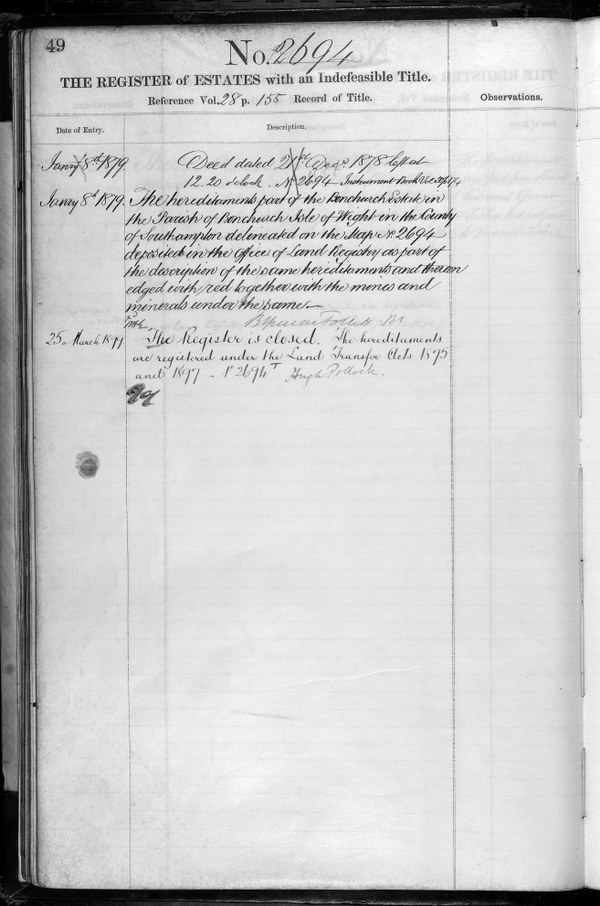 49
No. 2694
THE REGISTER of ESTATES with an Indefeasible Title.
Reference Vol. 28 p. 155 Record of Title.
Observations.
Date of Entry.
Description.
Janry 8th 1879.
Deed dated Decr 1878 left at
12.20 o'clock. No 2694 Instrument Book Vol
Janry 8th 1879.
The hereditaments part of the Bonchurch Estate in
the Parish of Bonchurch Isle of Wight in the County
of Southampton delineated on the Map No 2694
deposited in the Office of Land Registry as part of
the description of the same hereditaments and thereon
edged with red together with the mines and
minerals under the same.—
25. March 1899
The Register is closed. The hereditaments
are registered under the Land Transfer Acts 1875
and 1897 – No 2694 T Hugh Pollock.